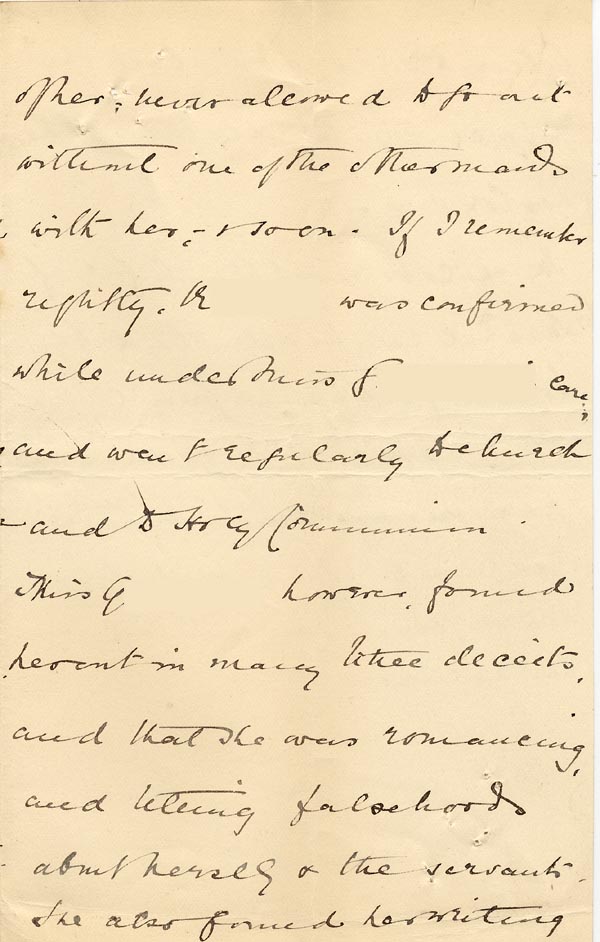 of her; never allowed to go out
without one of the other maids
with her, - & so on - If I remember
rightly, K was confirmed
while under Miss G care,
and went regularly to church
- and to Holy Communion.
Miss G however, found
her out in many little deceits,
and that she was romancing,
and telling falsehoods
about herself & the servants.
She also found her writing